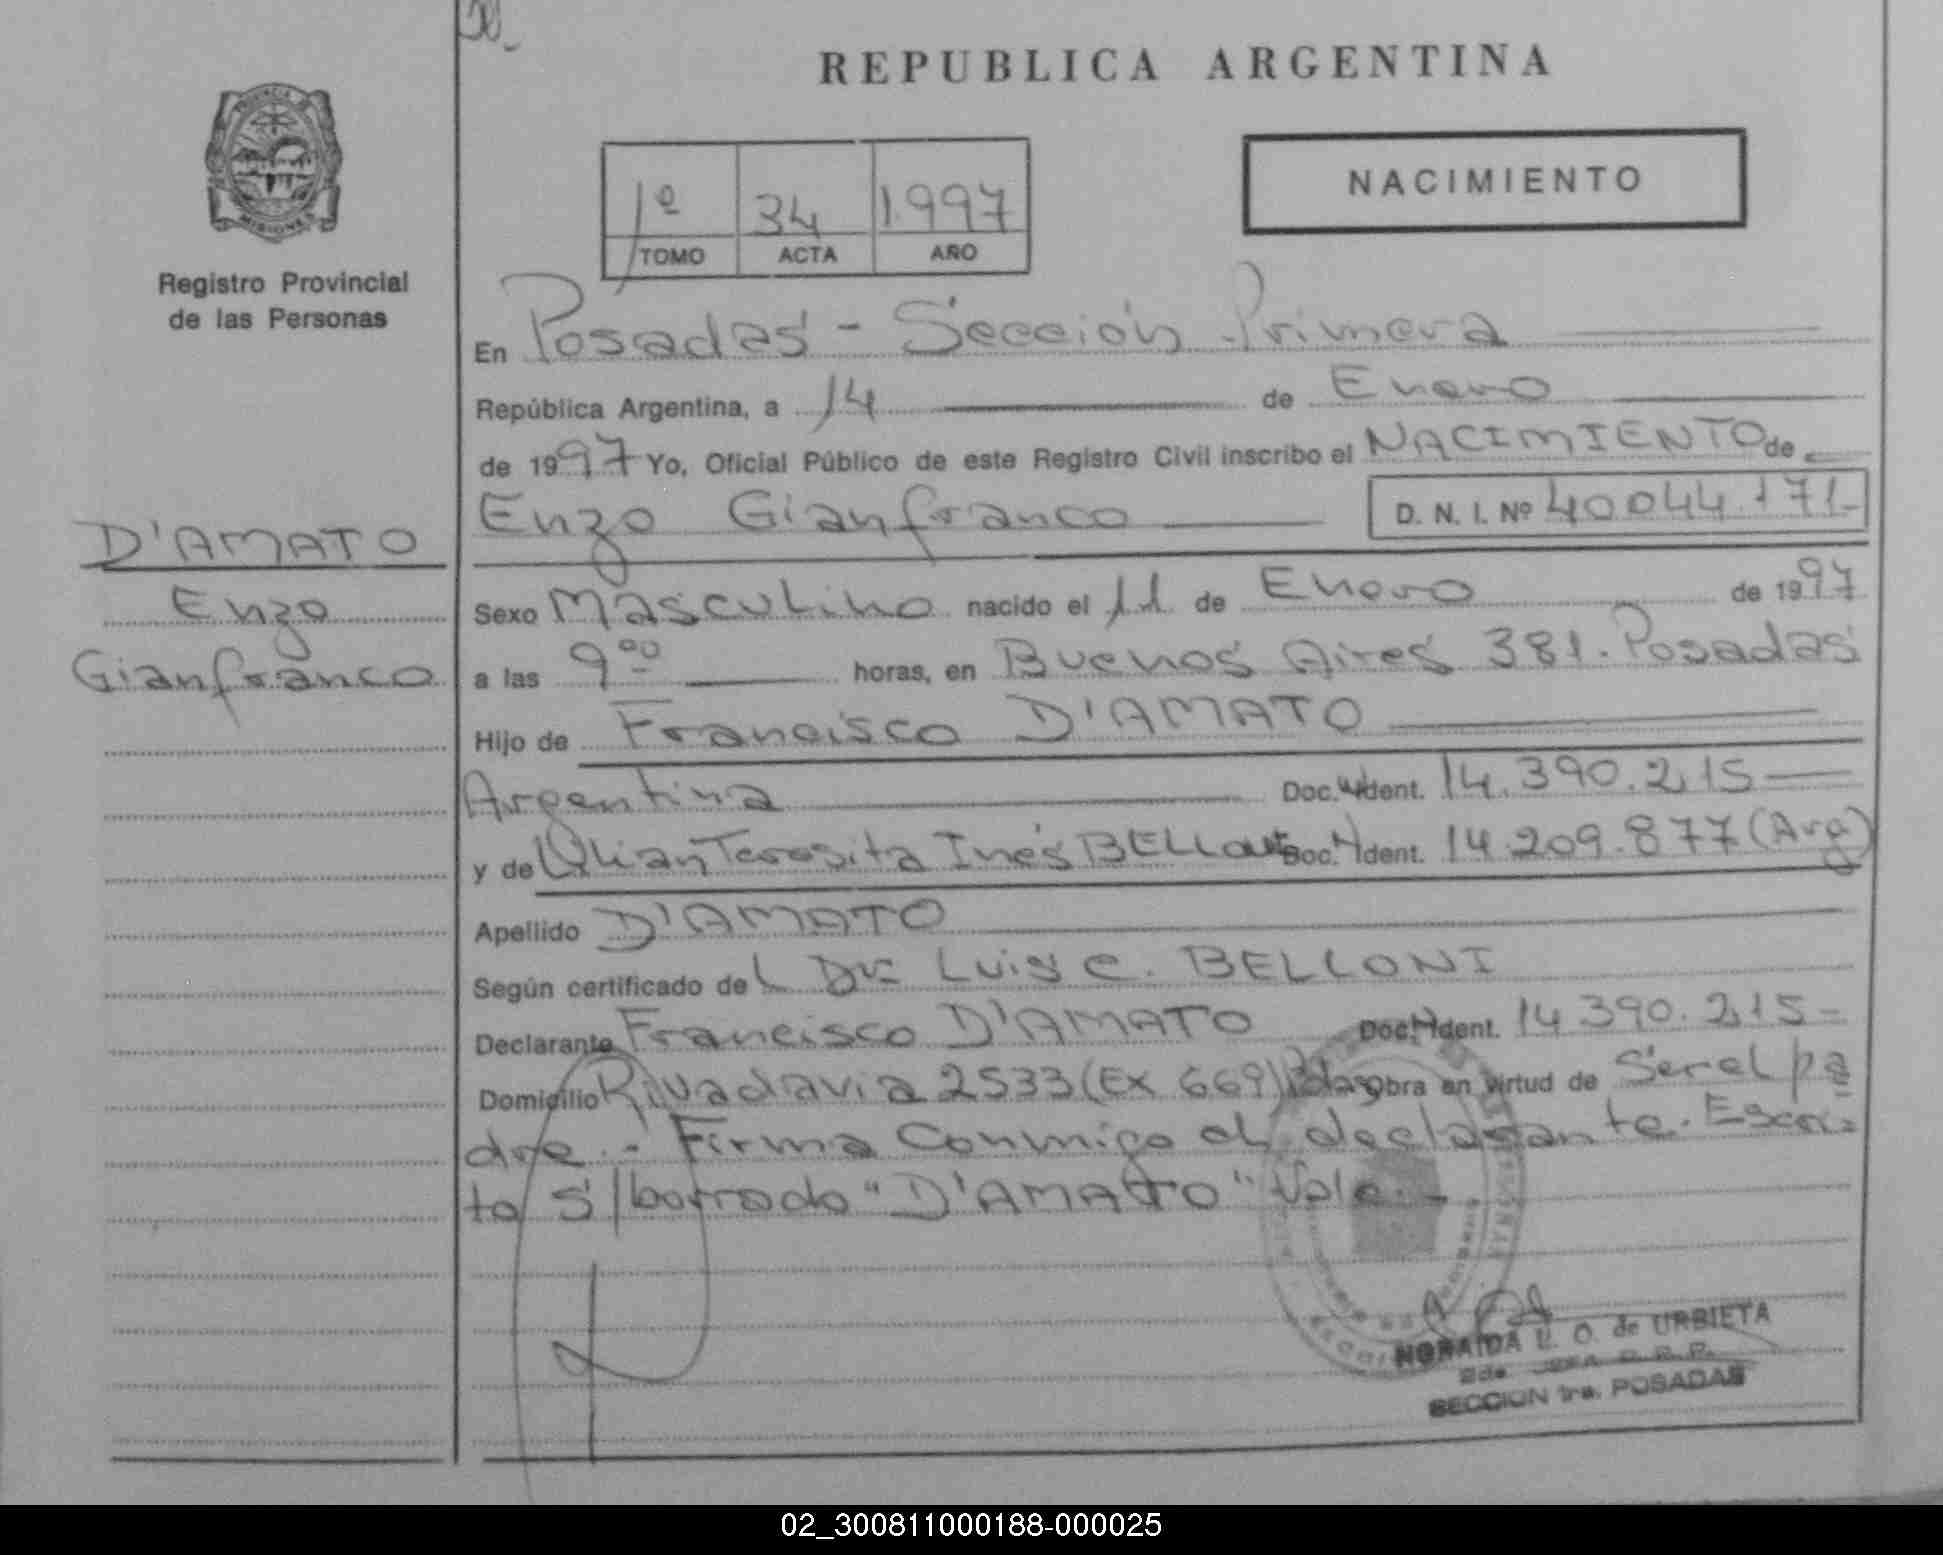 REPUBLICA ARGENTINA
PROVINCIA DE
MISIONES
Registro Provincial
de las Personas
1º 34 1.997
TOMO ACTA AÑO
NACIMIENTO
En Posadas - Sección Primera
República Argentina, a 14 de Enero
de 1997 Yo, Oficial Público de este Registro Civil inscribo el NACIMIENTO de
Enzo Gianfranco D. N. I. Nº 40044.171-
D'AMATO
Enzo
Gianfranco
Sexo Masculino nacido el 11 de Enero de 1997
a las 9 00 horas, en Buenos Aires 381. Posadas
Hijo de Francisco D'AMATO
Argentina Doc. Ident. 14.390.215
y de Lilian Teresita Inés BELLONI Doc. Ident. 14.209.877 (Arg)
Apellido D'AMATO
Según certificado de L Dr. Luis C. BELLONI
Declarante Francisco D'AMATO Doc. Ident. 14.390.215-
Domicilio Rivadavia 2533 (Ex 669) Pdas Obra en virtud de Ser el pa
dre.- Firma Conmigo el declarante. Escri=
to S/borrado "D'AMATO" Vale.-
NORAIDA L. O. de URBIETA
2da. JEFA R. P. P.
SECCION 1ra. POSADAS
02_300811000188-000025